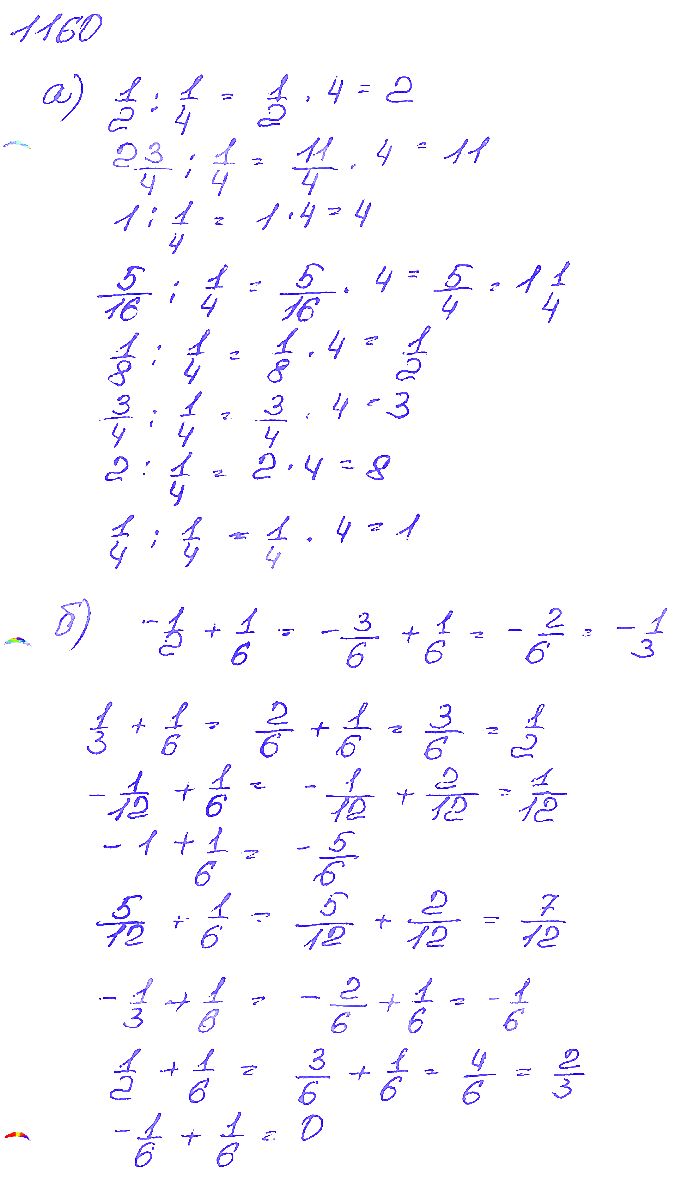 1160
а) 1/2 : 1/4 = 1/2 · 4 = 2
2 3/4 : 1/4 = 11/4 · 4 = 11
1 : 1/4 = 1 · 4 = 4
5/16 : 1/4 = 5/16 · 4 = 5/4 = 1 1/4
1/8 : 1/4 = 1/8 · 4 = 1/2
3/4 : 1/4 = 3/4 · 4 = 3
2 : 1/4 = 2 · 4 = 8
1/4 : 1/4 = 1/4 · 4 = 1
б) -1/2 + 1/6 = -3/6 + 1/6 = -2/6 = -1/3
1/3 + 1/6 = 2/6 + 1/6 = 3/6 = 1/2
-1/12 + 1/6 = -1/12 + 2/12 = 1/12
-1 + 1/6 = -5/6
5/12 + 1/6 = 5/12 + 2/12 = 7/12
-1/3 + 1/6 = -2/6 + 1/6 = -1/6
1/2 + 1/6 = 3/6 + 1/6 = 4/6 = 2/3
-1/6 + 1/6 = 0